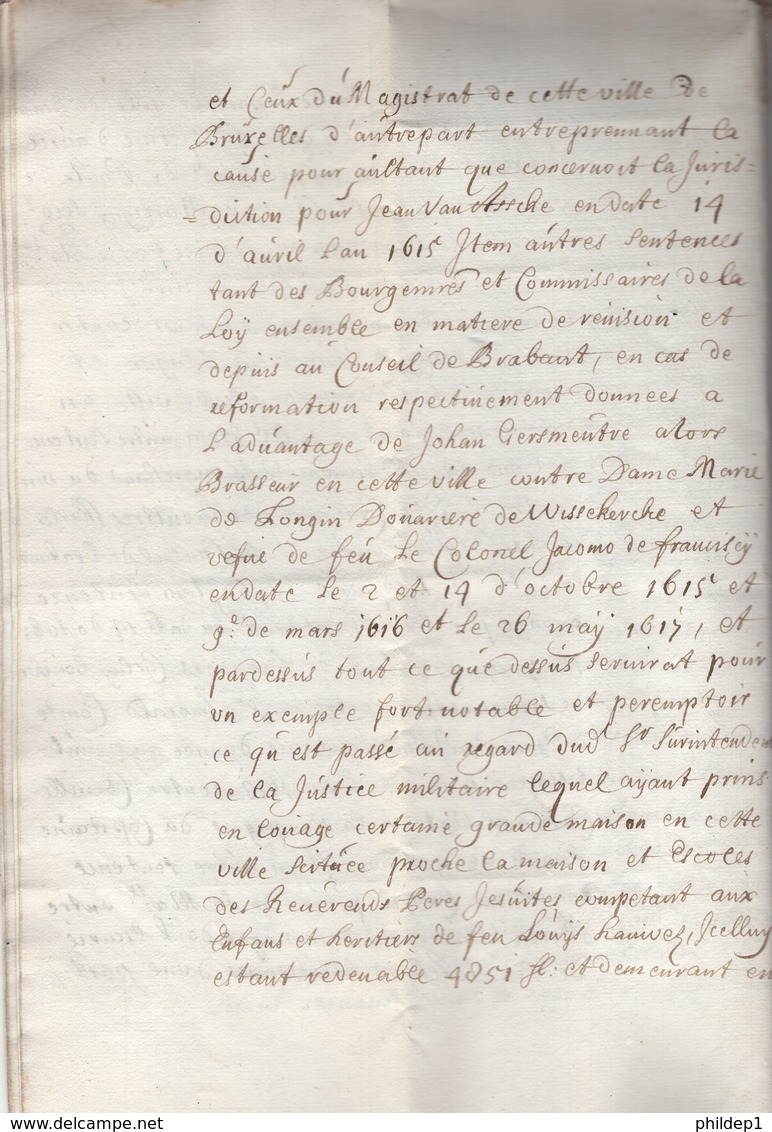 et Ceux du Magistrat de cette ville de
Bruxelles d'autrepart entreprennant la
cause pour aultant que concernoit la Juris=
=diction pour Jean Van Assche endate 14
d'auril Lan 1615 Item autres Sentences
tant des Bourgemres et Commissaires de la
Loÿ ensemble en matiere de reuision et
depuis au Conseil de Brabant, en cas de
reformation respectiuement donnees a
Laduantage de Johan Gersmeutre alors
Brasseur en cette ville contre Dame Marie
de Longin Douariere de Wissekerche et
vefue de feu Le Colonel Jacomo de francisÿ
endate Le 2 et 14 d'octobre 1615 et
9e de mars 1616 et Le 26 maÿ 1617, et
pardessus tout ce que dessus seruirat pour
vn exemple fort notable et peremptoir
ce qu'est passé au regard dud Sr Surintenden
de la Justice militaire lequel aÿant prins
en louage certaine grande maison en cette
ville Scituée proche la maison et Escoles
des Reuerends Peres Jesuites competant aux
Enfans et heritiers de feu Louÿs hauwez, Jcelluy
estant redeuable 4851 fl: et demeurant en
phildep1